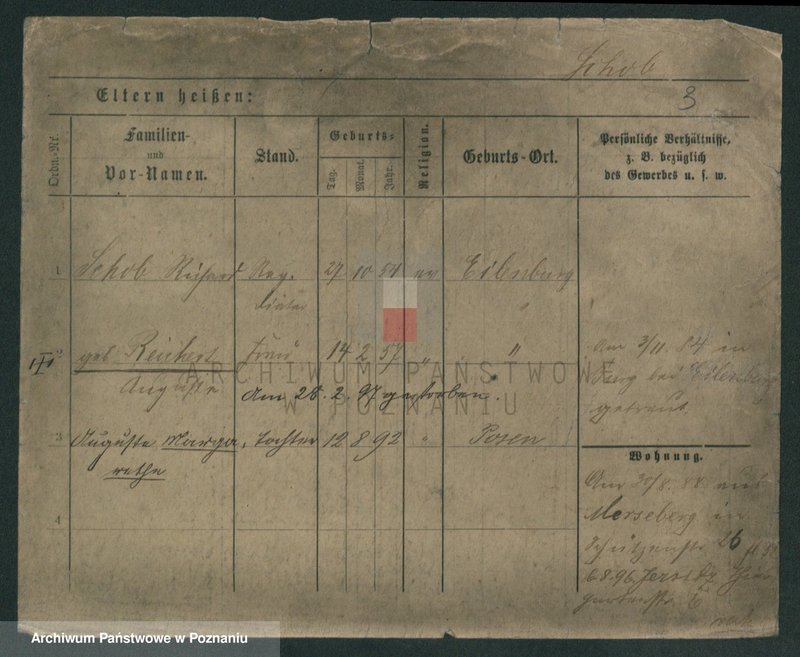 Schob
3
Eltern heißen:
Ordn.-Nr.
Familien-
und
Vor-Namen.
Stand.
Geburts-
Tag.
Monat.
Jahr.
Religion.
Geburts-Ort.
Persönliche Verhältnisse,
z. B. bezüglich
des Gewerbes u. s. w.
1 Schob Richard Reg. 27 10 54 ev Eilenburg
Diätar "
geb. Reichert Frau 14 2 57 " "
Auguste Am 28. 2. 97 gestorben.
Am 3/11. 84 in
bei Eilenburg
getraut
ARCHIWUM PAŃSTWOWE
W POZNANIU
3 Auguste Marga- Tochter 12 8 92 " Posen
rethe
4
Wohnung.
Am 30/8. 88 aus
Merseberg in
Schützenstr 26
6.8.96. Jersitz
Archiwum Państwowe w Poznaniu